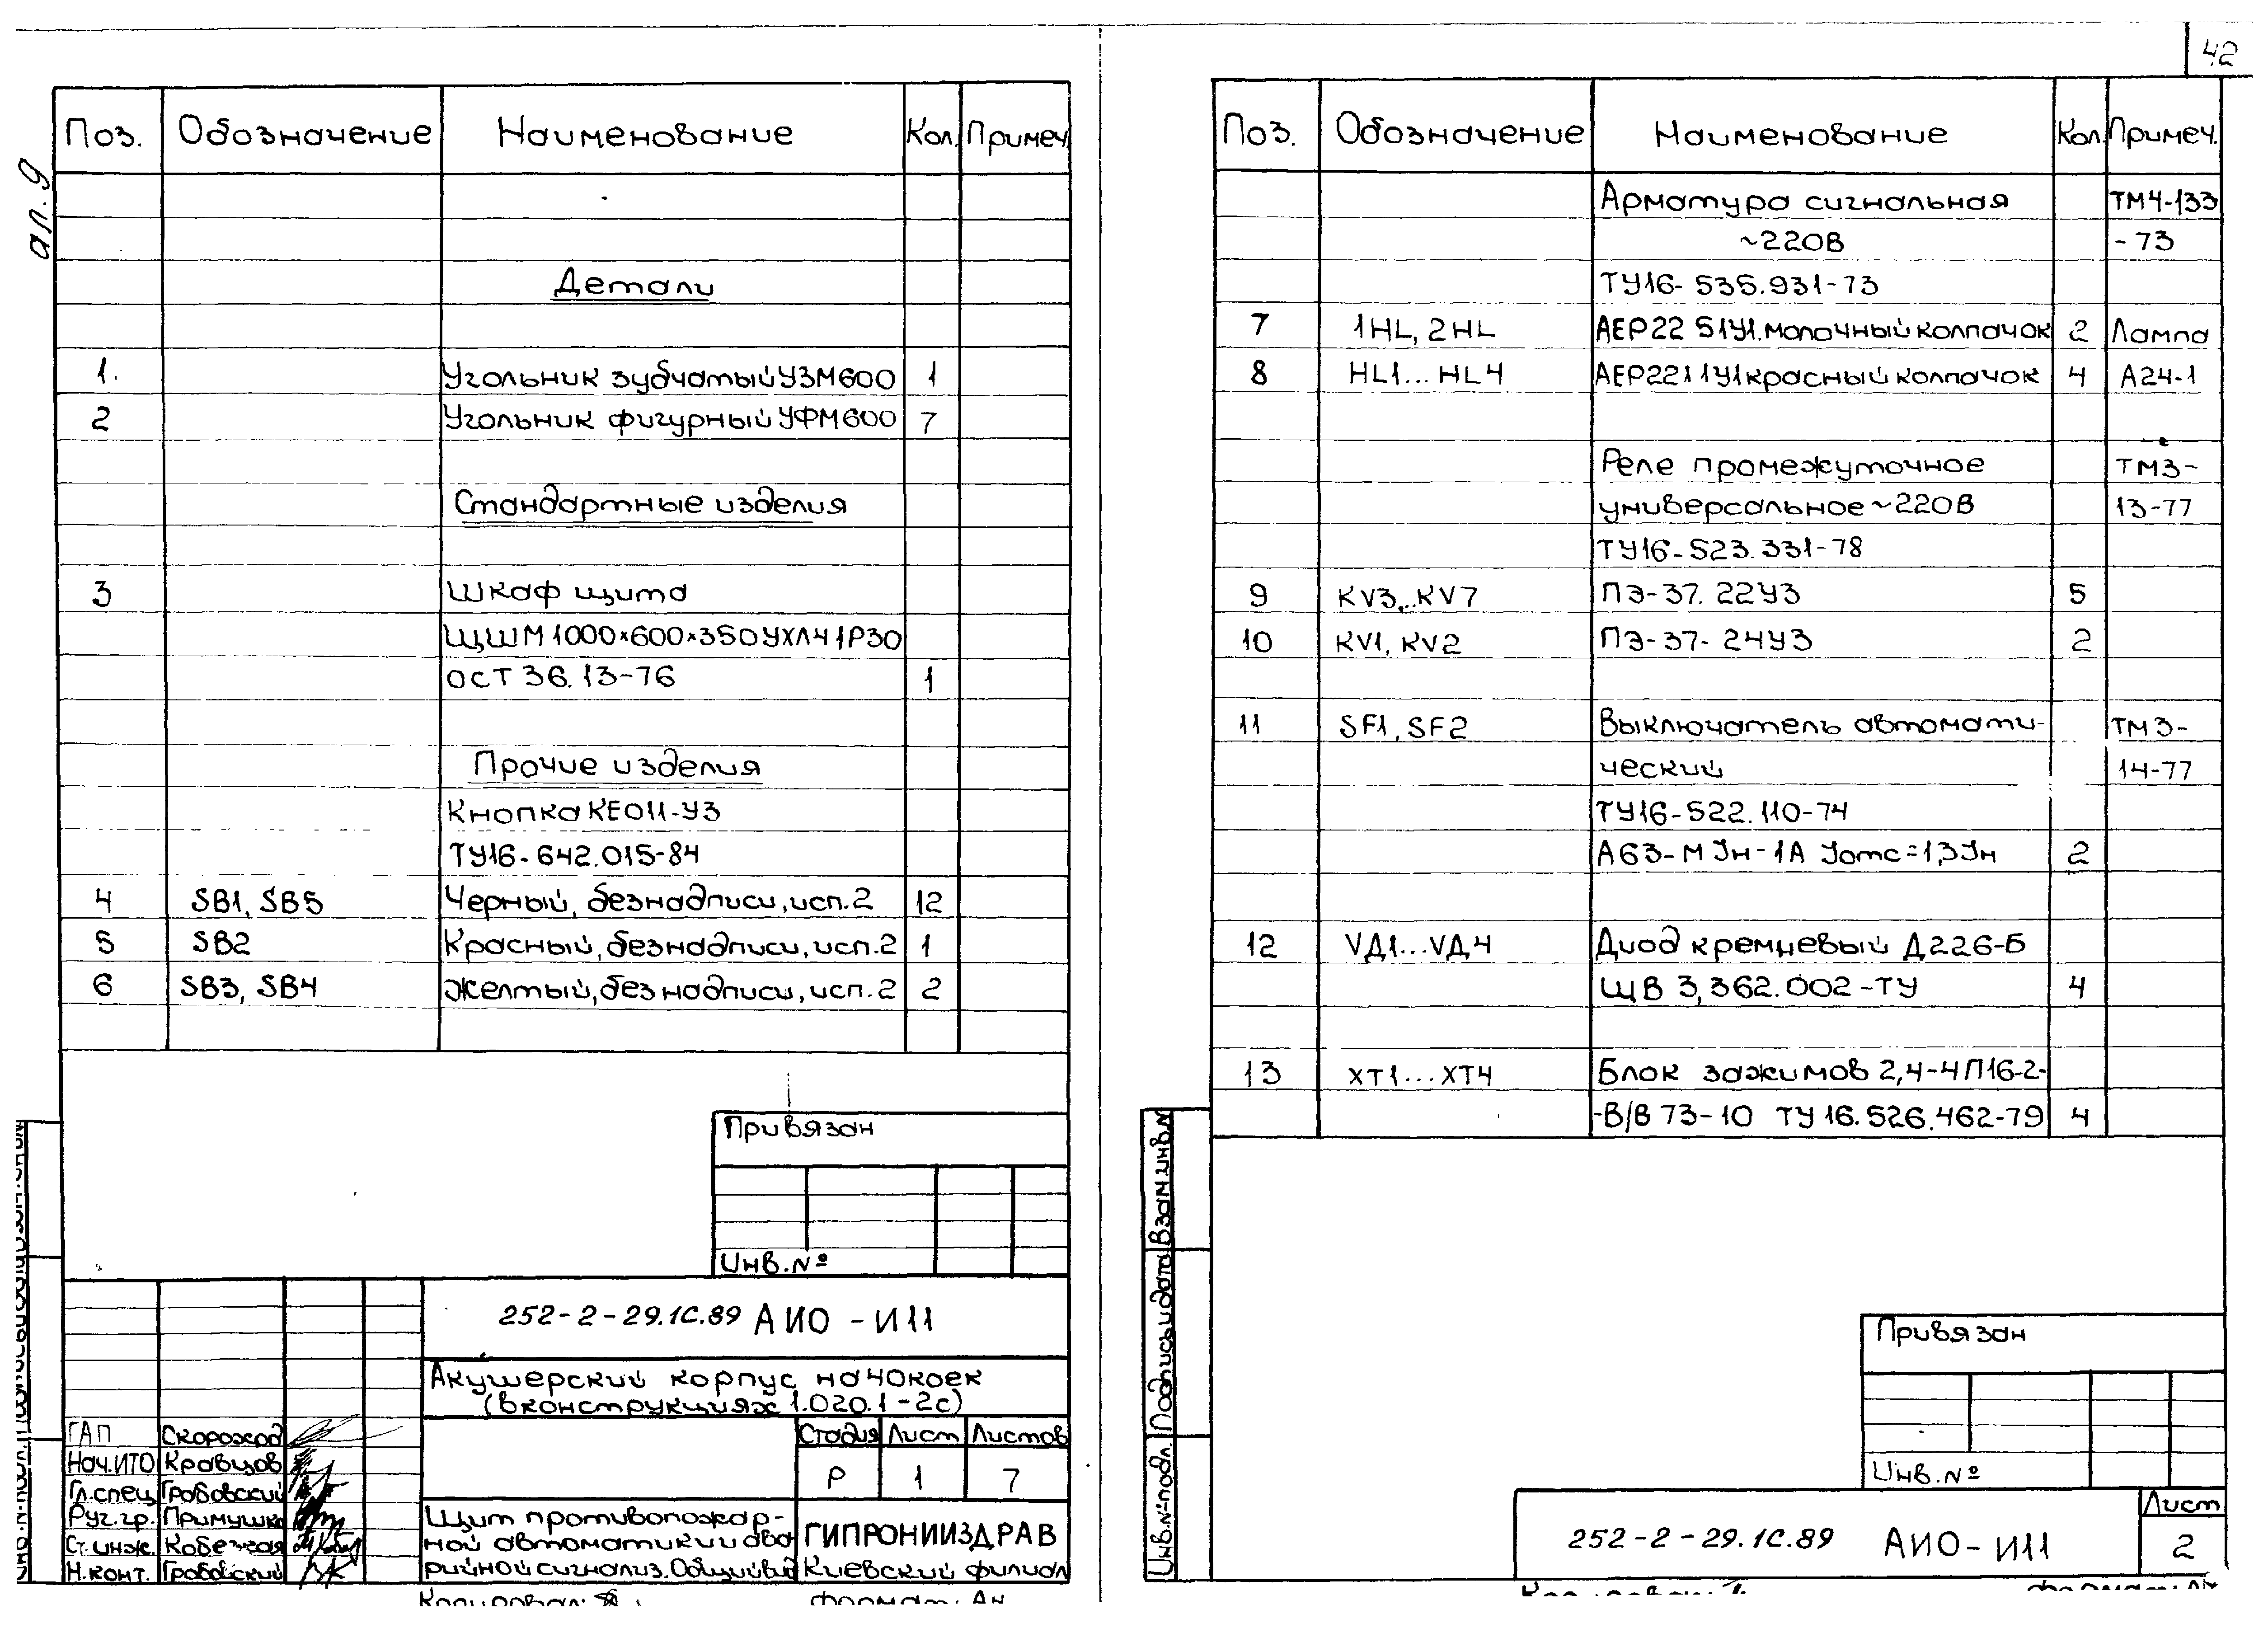 42
ал. 9
Поз. Обозначение Наименование Кол. Примеч.
Детали
1. Угольник зубчатый УЗМ600 1
2 Угольник фигурный УФМ600 7
Стандартные изделия
3 Шкаф щита
ЩШМ 1000×600×350 УХЛ4 1Р30
ОСТ 36.13-76 1
Прочие изделия
Кнопка КЕ011-У3
ТУ16-642.015-84
4 SB1, SB5 Черный, без надписи, исп.2 12
5 SB2 Красный, без надписи, исп.2 1
6 SB3, SB4 Желтый, без надписи, исп.2 2
Привязан
Инв.№
252-2-29.1С.89 АИО-И11
Акушерский корпус на 40 коек
(в конструкциях 1.020.1-2с)
ГАП Скороход
Нач.ИТО Кравцов
Гл.спец Грабовский
Рук.гр. Примушко
Ст.инж.
Н.конт. Грабовский
Стадия Лист Листов
Р 1 7
Щит противопожар-
ной автоматики и ава
рийной сигнализ. Общий вид
ГИПРОНИИЗДРАВ
Киевский филиал
Копировал:
Формат: А4
Поз. Обозначение Наименование Кол. Примеч.
Арматура сигнальная ТМ4-133
~220В -73
ТУ16-535.931-73
7 1HL, 2HL АЕР22 51У1. молочный колпачок 2 Лампа
8 HL1...HL4 АЕР2211У1 красный колпачок 4 А24-1
Реле промежуточное ТМ3-
универсальное ~220В 13-77
ТУ16-523.331-78
9 KV3...KV7 ПЭ-37.22У3 5
10 KV1, KV2 ПЭ-37-24У3 2
11 SF1, SF2 Выключатель автомати- ТМ3-
ческий 14-77
ТУ16-522.110-74
А63-М Iн-1А Iотс=1,3Iн 2
12 VД1...VД4 Диод кремневый Д226-Б
ЩВ 3,362.002-ТУ 4
13 XT1...XT4 Блок зажимов 2,4-4П16-2-
-В/В 73-10 ТУ 16.526.462-79 4
Взам.инв.№
Подпись и дата
Инв.№подл.
Привязан
Инв.№
252-2-29.1С.89 АИО-И11
Лист
2